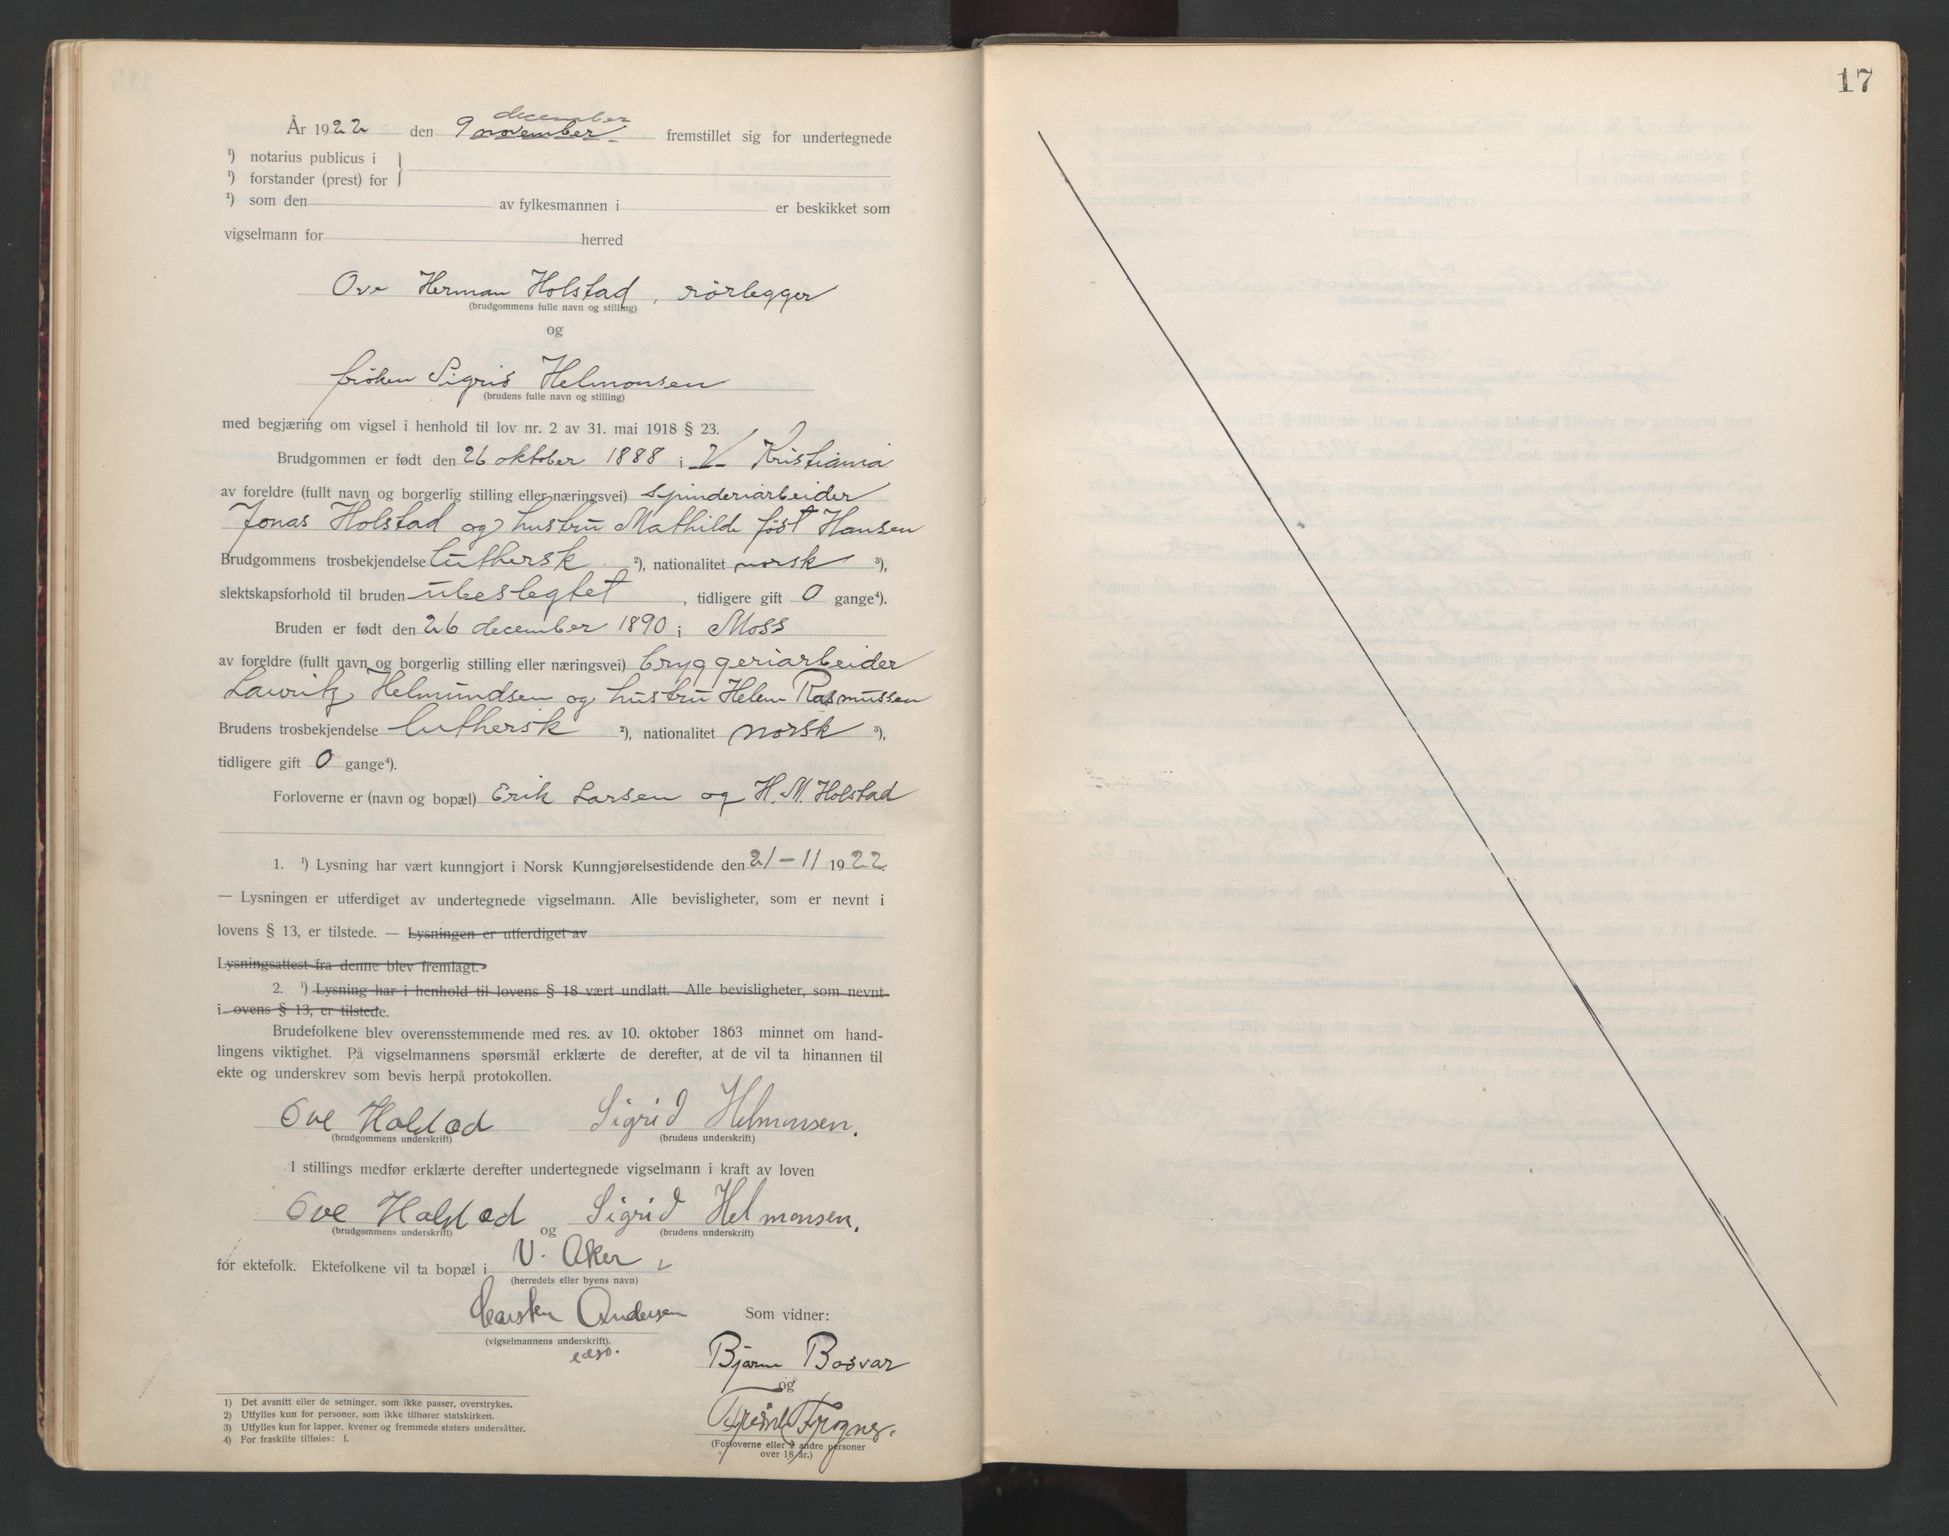 År 1922 den 9 november december fremstillet sig for undertegnede
¹) notarius publicus i
¹) forstander (prest) for
¹) som den av fylkesmannen i er beskikket som
vigselmann for herred
Ove Herman Holstad, rörlegger
(brudgommens fulle navn og stilling)
og
fröken Sigrid Helmonsen
(brudens fulle navn og stilling)
med begjæring om vigsel i henhold til lov nr. 2 av 31. mai 1918 § 23.
Brudgommen er født den 26 oktober 1888 i V Kristiania
av foreldre (fullt navn og borgerlig stilling eller næringsvei) spinderiarbeider
Jonas Holstad og hustru Mathilde föst Hansen
Brudgommens trosbekjendelse luthersk ²), nationalitet norsk ³),
slektskapsforhold til bruden ubeslegtet, tidligere gift 0 gange⁴).
Bruden er født den 26 december 1890 i Moss
av foreldre (fullt navn og borgerlig stilling eller næringsvei) bryggeriarbeider
Lauritz Helmundsen og hustru Helene Rasmussen
Brudens trosbekjendelse luthersk ²), nationalitet norsk ³),
tidligere gift 0 gange⁴).
Forloverne er (navn og bopæl) Erik Larsen og H. M. Holstad
1. ¹) Lysning har vært kunngjort i Norsk Kunngjørelsestidende den 21-11 1922.
— Lysningen er utferdiget av undertegnede vigselmann. Alle bevisligheter, som er nevnt i
lovens § 13, er tilstede. — Lysningen er utferdiget av
Lysningsattest fra denne blev fremlagt.
2. ¹) Lysning har i henhold til lovens § 18 vært undlatt. Alle bevisligheter, som nevnt
i lovens § 13, er tilstede.
Brudefolkene blev overensstemmende med res. av 10. oktober 1863 minnet om hand-
lingens viktighet. På vigselmannens spørsmål erklærte de derefter, at de vil ta hinannen til
ekte og underskrev som bevis herpå protokollen.
Ove Holstad Sigrid Helmonsen.
(brudgommens underskrift) (brudens underskrift)
I stillings medfør erklærte derefter undertegnede vigselmann i kraft av loven
Ove Holstad og Sigrid Helmonsen.
(brudgommens underskrift) (brudens underskrift)
for ektefolk. Ektefolkene vil ta bopæl i V. Aker
(herredets eller byens navn)
Carsten Andersen Som vidner:
(vigselmannens underskrift).
edsv.
Bjarne Bosvar
og
Frogner.
(Forloverne eller 2 andre personer
over 18 år.)
1) Det avsnitt eller de setninger, som ikke passer, overstrykes.
2) Utfylles kun for personer, som ikke tilhører statskirken.
3) Utfylles kun for lapper, kvener og fremmede staters undersåtter.
4) For fraskilte tilføies: f.
17